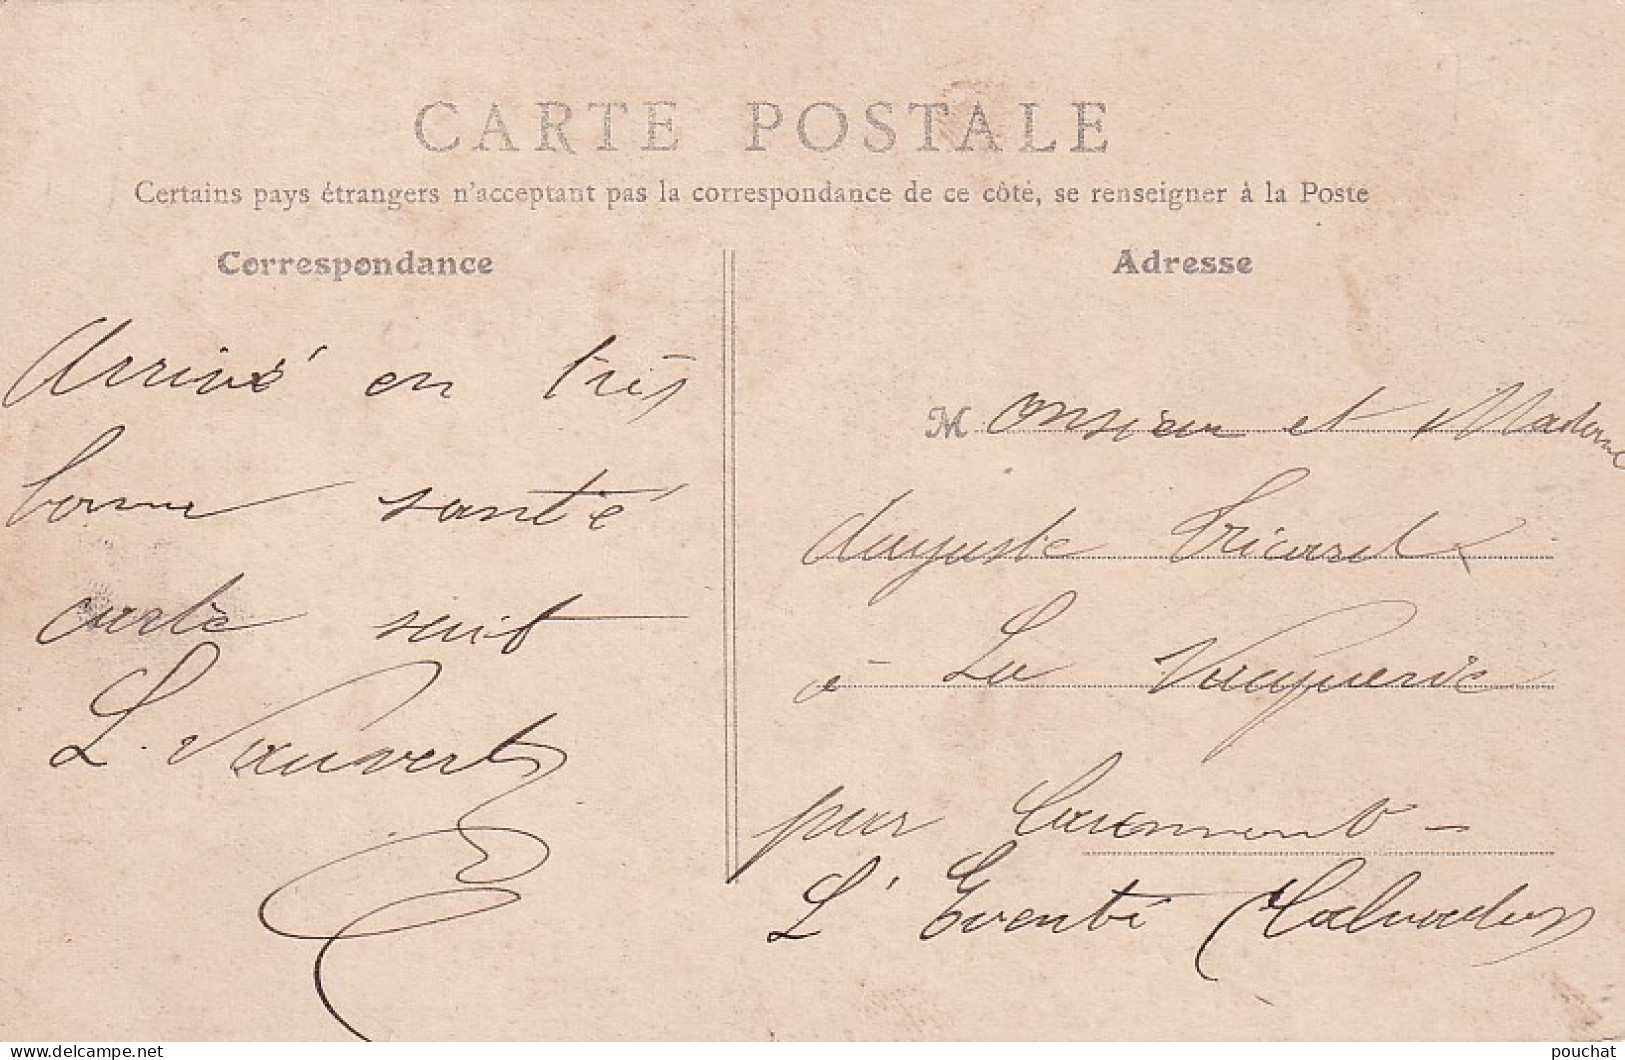 CARTE POSTALE
Certains pays étrangers n'acceptant pas la correspondance de ce côté, se renseigner à la Poste
Correspondance
Arrivé en très
bonne santé
carte suit
L. Vauvert
Adresse
Monsieur et Madame
Auguste Tricard
à La Vacquerie
par Caumont -
L'Eventé (Calvados)
delcampe.net
pouchat